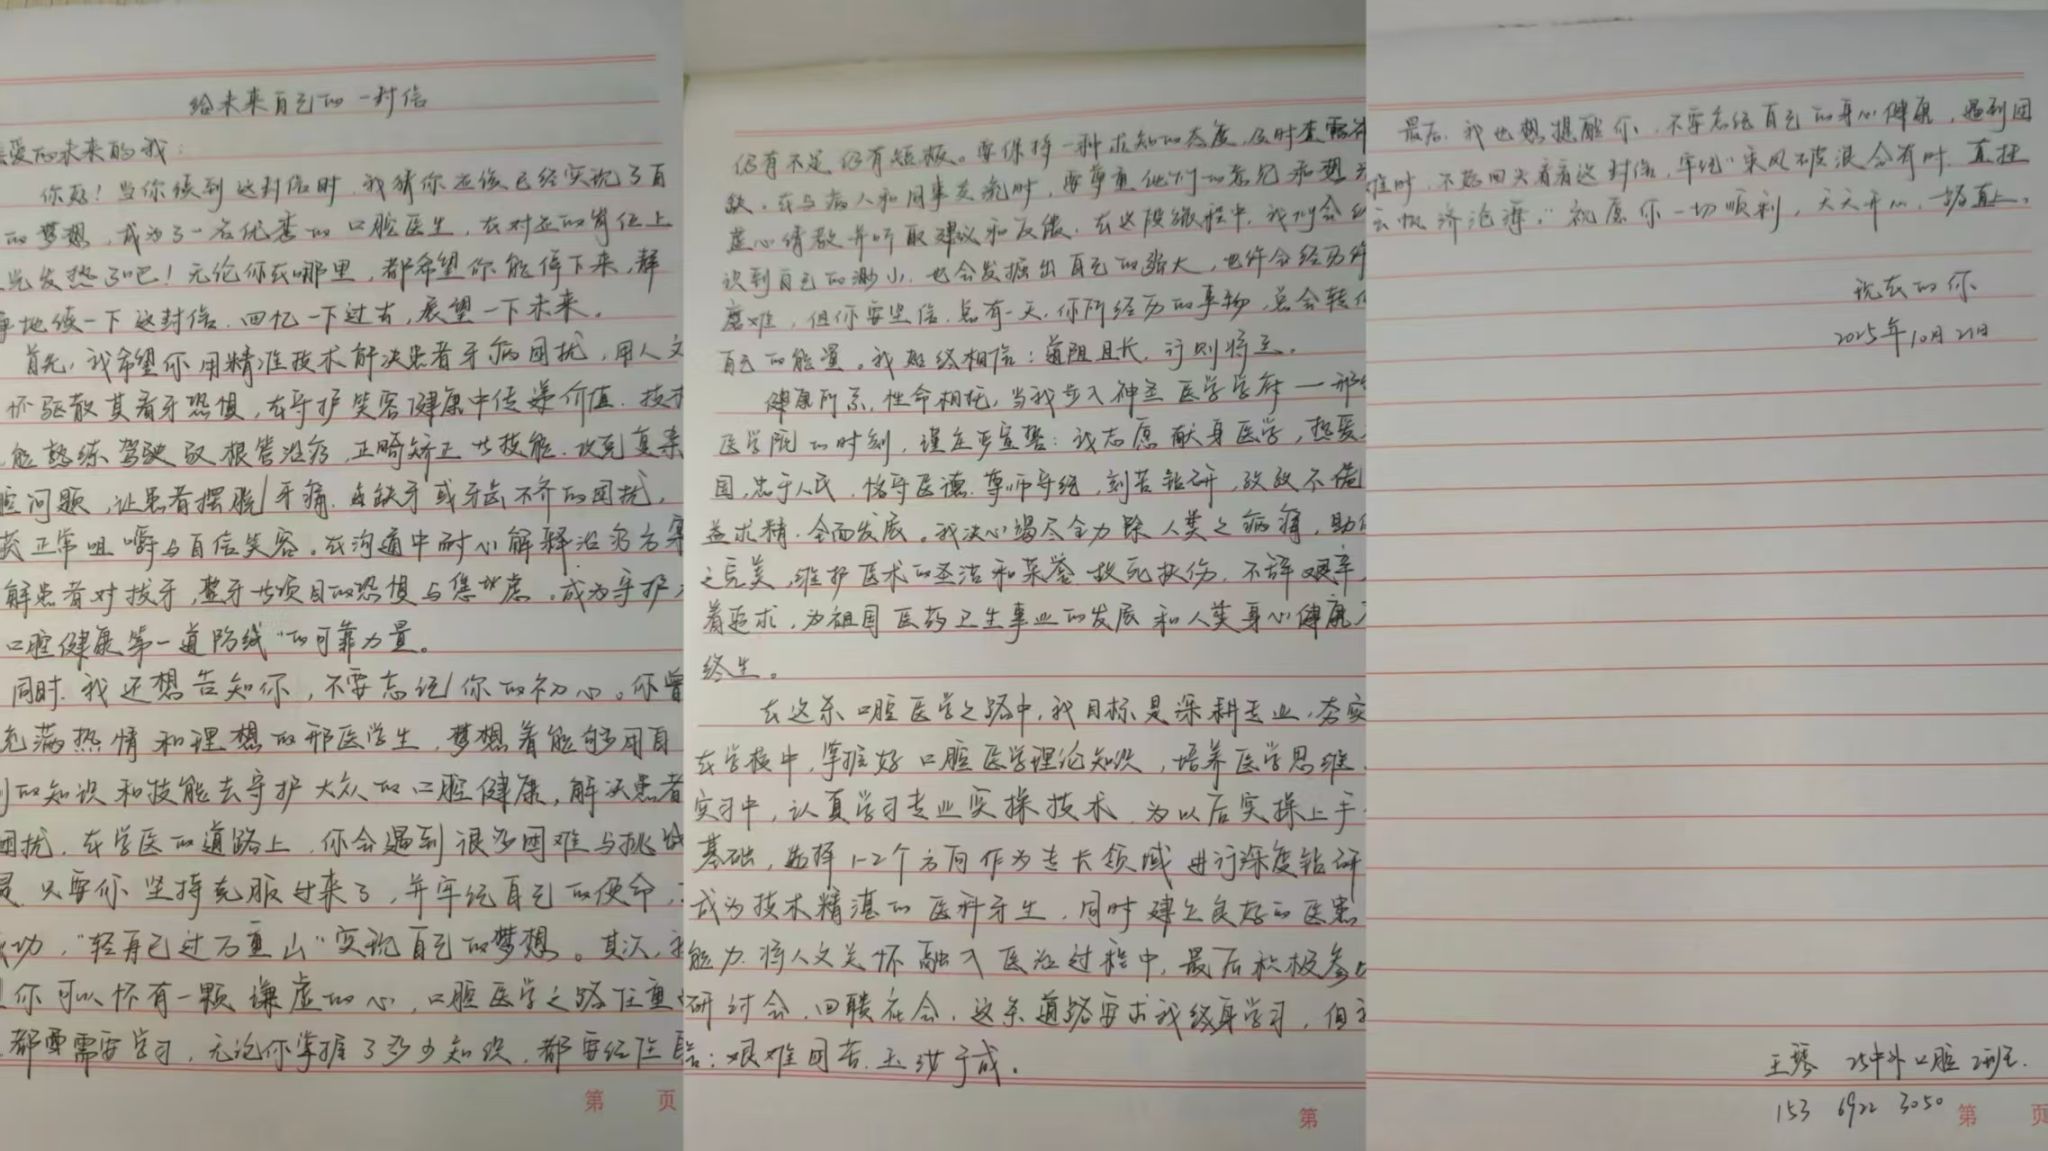 给未来自己的一封信
爱的未来的我：
你好！当你读到这封信时，我猜你应该已经实现了自
的梦想，成为了一名优秀的口腔医生，在对应的岗位上
光发热了吧！无论你在哪里，都希望你能停下来，静
地读一下这封信，回忆一下过去，展望一下未来。
首先，我希望你用精准技术解决患者牙病困扰，用人文
怀驱散其看牙恐惧，在守护笑容健康中传递价值。技
能熟练驾驶取根管治疗，正畸矫正等技能，攻克复杂
腔问题，让患者摆脱牙痛、缺牙或牙齿不齐的困扰，
获正常咀嚼与自信笑容。在沟通中耐心解释治疗方案
解患者对拔牙，整牙等项目的恐惧与焦虑，成为守护
口腔健康第一道防线"的可靠力量。
同时，我还想告知你，不要忘记你的初心。你曾
充满热情和理想的那医学生，梦想着能够用自
的知识和技能去守护大众的口腔健康，解决患者
困扰，在学医的道路上，你会遇到很多困难与挑战
只要你坚持克服过来了，并牢记自己的使命，
功，"轻舟已过万重山"实现自己的梦想。其次，
你可以怀有一颗谦虚的心，口腔医学之路任重
都要需要学习，无论你掌握了多少知识，都要经住
仍有不足仍有短板。要保持一种求知的态度，及时查漏补
缺，在与病人和同事交流时，要尊重他们的意见和想
虚心请教并听取建议和反馈，在这段旅程中，我们会
识到自己的渺小，也会发掘出自己的强大，也许会经历
磨难，但你要坚信，总有一天，你所经历的事物，总会转
自己的能量。我始终相信：道阻且长，行则将至。
健康所系，性命相托，当我步入神圣医学学府一那
医学院的时刻，谨庄严宣誓：我志愿献身医学，热爱
国，忠于人民，恪守医德，尊师守纪，刻苦钻研，孜孜不倦
益求精，全面发展。我决心竭尽全力除人类之病痛，助
之完美，维护医术的圣洁和荣誉，救死扶伤，不辞艰辛，
着追求，为祖国医药卫生事业的发展和人类身心健康
终生。
在这条口腔医学之路中，我目标是深耕专业，夯实
在学校中，掌握好口腔医学理论知识，培养医学思维，
实习中，认真学习专业实操技术，为以后实操上手
基础，选择1-2个方向作为专长领域进行深度钻研
成为技术精湛的医科牙生，同时建立良好的医患
能力，将人文关怀融入医治过程中，最后积极参
研讨会，回馈社会，这条道路要求我终身学习，但
：艰难困苦，玉汝于成。
最后，我也想提醒你，不要忘记自己的身心健康，遇到困
难时，不妨回头看看这封信，牢记"乘风破浪会有时，直挂
云帆济沧海，"祝愿你一切顺利，天天开心，一路直上。
现在的你
2025年10月21日
王琴 25中外口腔2班
153 6922 3050
第 页
第
第 页